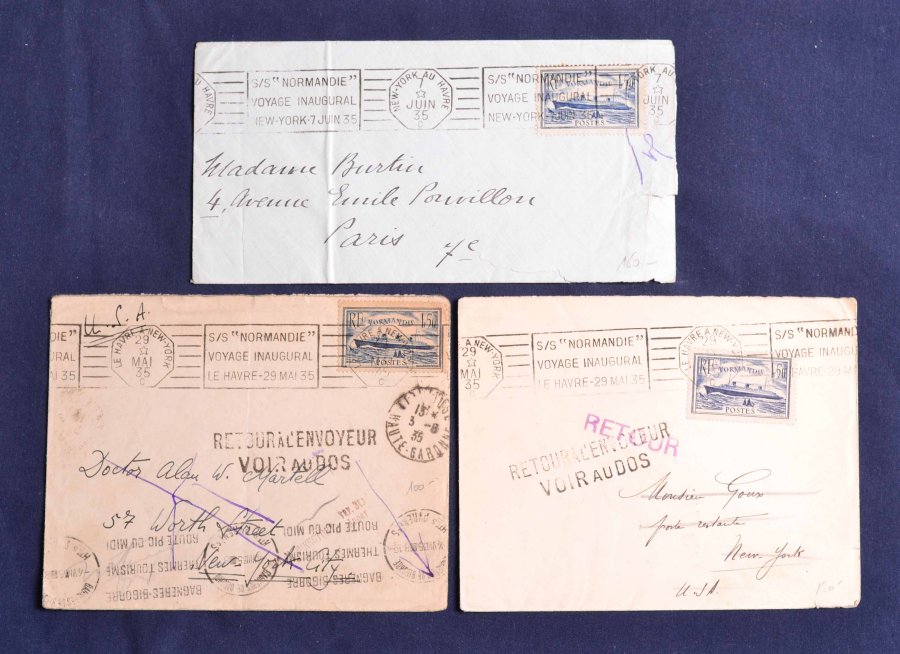 NEW-YORK AU HAVRE
S/S "NORMANDIE"
VOYAGE INAUGURAL
NEW-YORK-7 JUIN 35
NEW-YORK AU HAVRE
7
JUIN
35
S/S "NORMANDIE"
VOYAGE INAUGURAL
NEW-YORK-7 JUIN 35
RF NORMANDIE 1F50
POSTES
NEW-YORK AU HAVRE
JUIN
35
Madame Burtin
4, Avenue Emile Pouvillon
Paris 7e
160-
U.S.A
LE HAVRE A NEW-YORK
29
MAI
35
S/S "NORMANDIE"
VOYAGE INAUGURAL
LE HAVRE-29 MAI 35
RF NORMANDIE 1F50
POSTES
HTE-GARONNE
RETOUR A L'ENVOYEUR
VOIR AU DOS
Doctor Alan W. Martell
57 Worth Street
New-York City
100-
BAGNERES-BIGORRE
THERMES TOURISME
ROUTE PIC DU MIDI
LE HAVRE A NEW-YORK
29
MAI
35
S/S "NORMANDIE"
VOYAGE INAUGURAL
LE HAVRE-29 MAI 35
RF NORMANDIE 1F50
POSTES
S/S "NORMAN
VOYAGE INAU
RETOUR
RETOUR A L'ENVOYEUR
VOIR AU DOS
Monsieur Goux
poste restante
New-York
U.S.A.